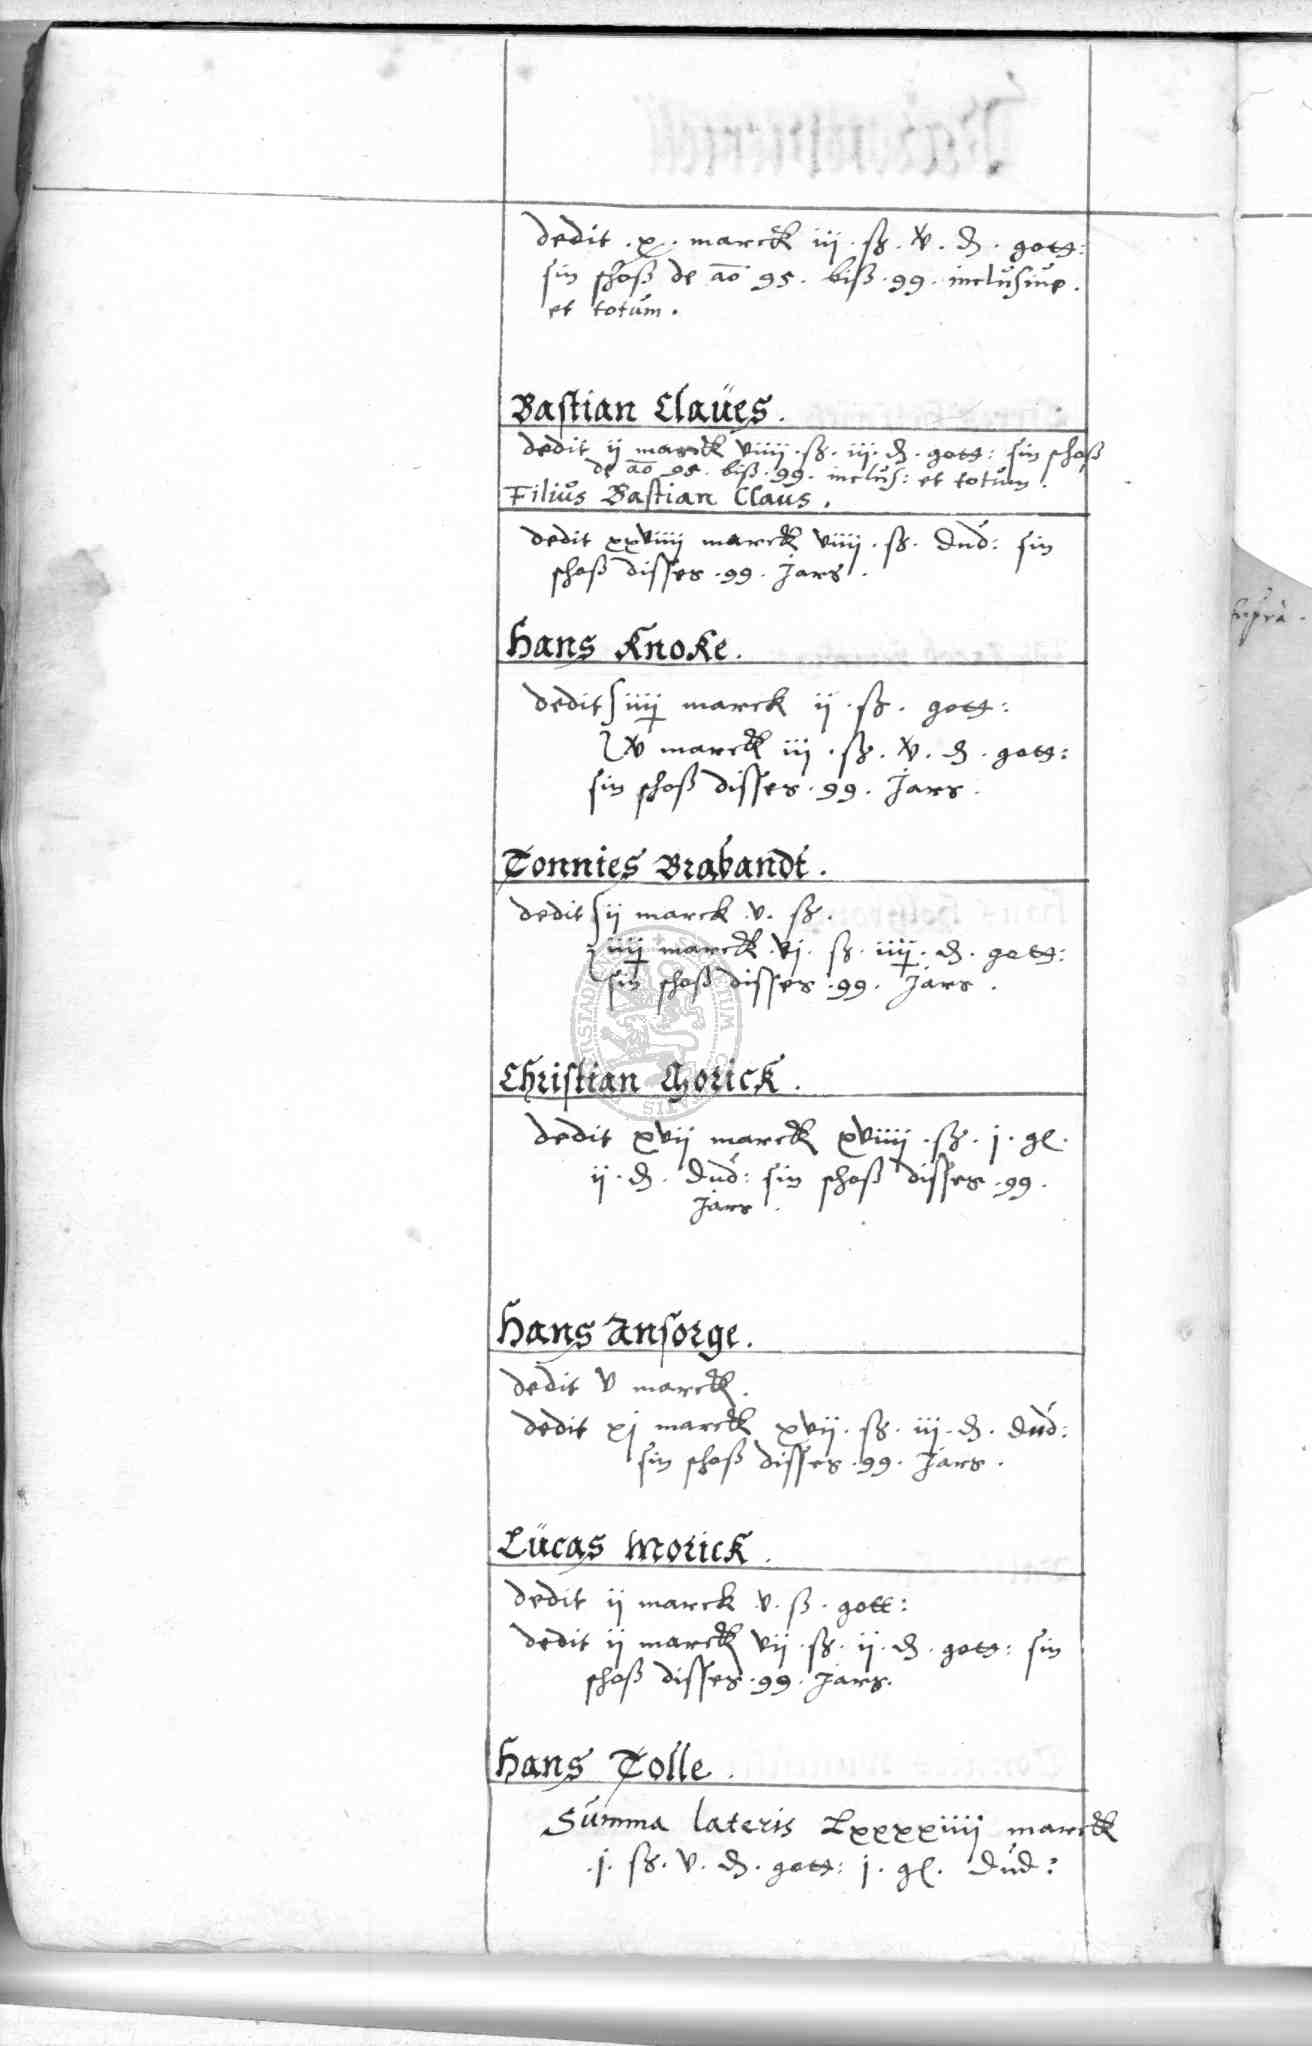 dedit . x . marck iij . ß . v . ₰ . gott:
sin schoß de ao 95 . biß . 99 . inclusiue .
et totum .
Bastian Claües .
dedit ij marck viiij . ß . iij . ₰ . gott: sin schoß
de ao 95 . biß . 99 . inclus: et totum .
Filius Bastian Claus .
dedit xxviiij marck viiij . ß . dud: sin
schoß disses . 99 . Jars .
Hans Knoke .
dedit iiij marck ij . ß . gott:
v marck iij . ß . v . ₰ . gott:
sin schoß disses . 99 . Jars .
Tonnies Brabandt .
dedit ij marck . v . ß .
iiij marck . vj . ß . iiij . ₰ . gott:
sin schoß disses . 99 . Jars .
Christian Gorick .
dedit xvij marck xviiij . ß . j . gl .
ij . ₰ . dud: sin schoß disses . 99 .
Jars .
Hans Ansorge .
dedit v marck .
dedit xj marck xvij . ß . iij . ₰ . dud:
sin schoß disses . 99 . Jars .
Lücas Morick .
dedit ij marck . v . ß . gott:
dedit ij marck vij . ß . ij . ₰ . gott: sin
schoß disses . 99 . Jars .
Hans Tolle .
Summa lateris Lxxxxiiij marck
. j . ß . v . ₰ . gott: j . gl . dud:
supra .